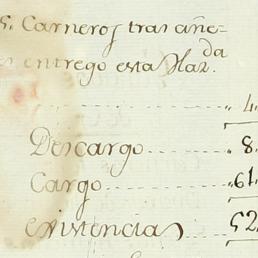 Carneros tras añe-
entrego esta Haz.da
4
Descargo 8
Cargo 61
existencias 52